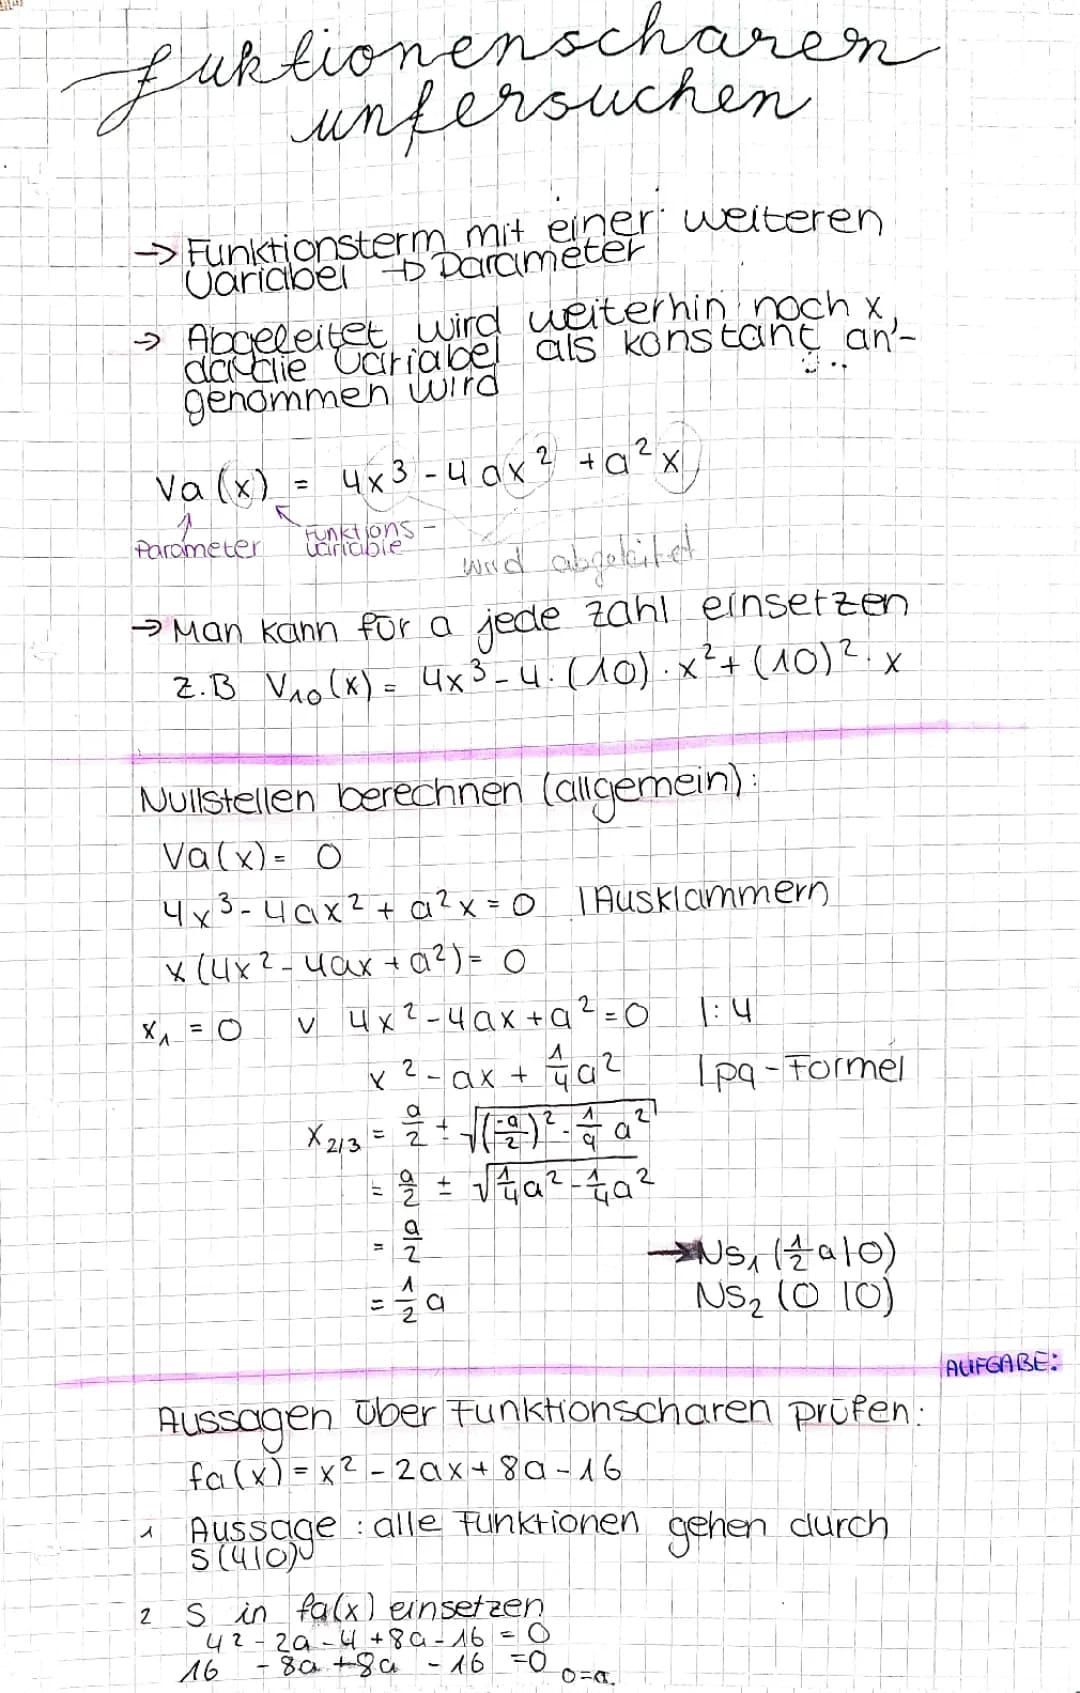 fuktionenscharen
untersuchen
→ Funktionsterm mit einer weiteren
Variabel → Parameter
→ Abgeleitet wird weiterhin noch x,
da die Variabel als konstant an-
genommen wird
Va (x) = 4x³ - 4ax² + a²x
Parameter
Funktions-
variable
wird abgeleitet
→ Man kann für a jede Zahl einsetzen
Z.B V₁₀(x) = 4x³ - 4·(10)·x² + (10)²·x
Nullstellen berechnen (allgemein):
Va(x) = 0
4x³ - 4ax² + a²x = 0 | Ausklammern
x(4x² - 4ax + a²) = 0
x₁ = 0 v 4x² - 4ax + a² = 0 |:4
x² - ax + 1/4 a² | pq-Formel
x₂/₃ = a/2 ± √((-a/2)² - 1/4 a²)
= a/2 ± √(1/4 a² - 1/4 a²)
= a/2
= 1/2 a
→ NS₁ (1/2 a|0)
NS₂ (0|0)
AUFGABE:
Aussagen über Funktionscharen prüfen:
fa(x) = x² - 2ax + 8a - 16
1 Aussage: alle Funktionen gehen durch
S(4|0)
2 S in fa(x) einsetzen
4² - 2a - 4 + 8a - 16 = 0
16 - 8a + 8a - 16 = 0 0=a.